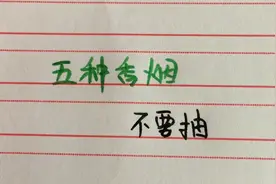 五种香烟
不要抽